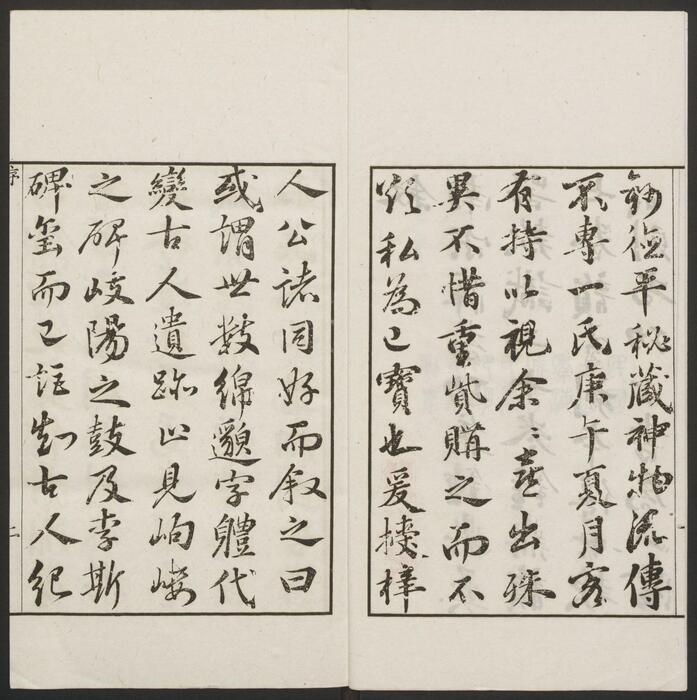 平秘藏神物流傳
不專一氏庚午夏月客
有持以視余〻喜出殊
異不惜重貲購之而不
敢私為己寶也爰授梓
人公諸同好而敘之曰
或謂世數綿邈字軆代
變古人遺跡止見岣嶁
之碑岐陽之鼓及李斯
碑璽而已詎知古人紀
序
二